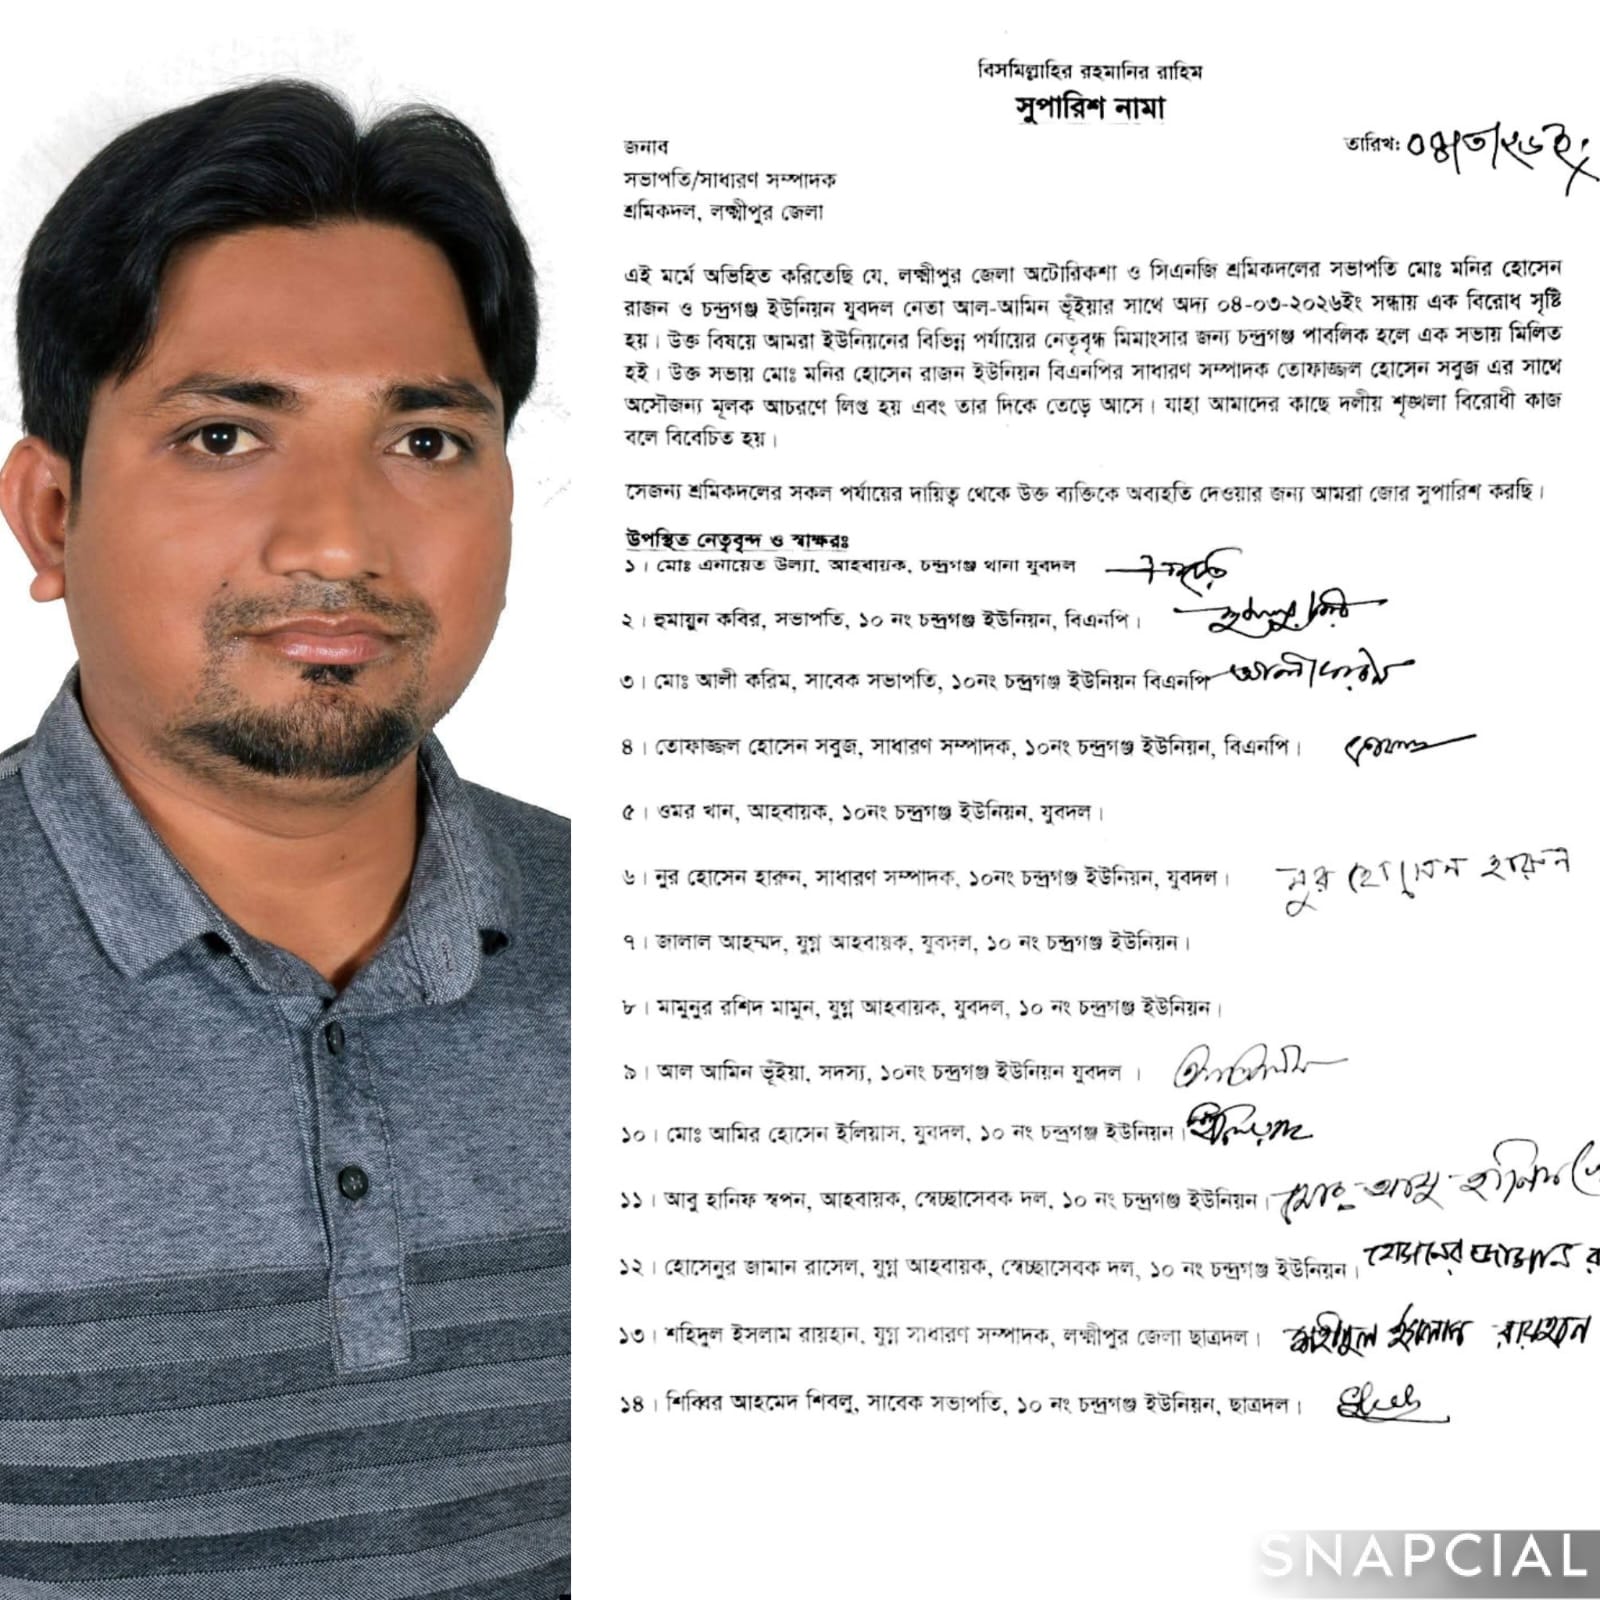 বিসমিল্লাহির রহমানির রাহিম
সুপারিশ নামা
তারিখ: ০৪/৩/২৬ইং
জনাব
সভাপতি/সাধারণ সম্পাদক
শ্রমিকদল, লক্ষ্মীপুর জেলা
এই মর্মে অভিহিত করিতেছি যে, লক্ষ্মীপুর জেলা অটোরিকশা ও সিএনজি শ্রমিকদলের সভাপতি মোঃ মনির হোসেন
রাজন ও চন্দ্রগঞ্জ ইউনিয়ন যুবদল নেতা আল-আমিন ভূঁইয়ার সাথে অদ্য ০৪-০৩-২০২৬ইং সন্ধায় এক বিরোধ সৃষ্টি
হয়। উক্ত বিষয়ে আমরা ইউনিয়নের বিভিন্ন পর্যায়ের নেতৃবৃন্ধ মিমাংসার জন্য চন্দ্রগঞ্জ পাবলিক হলে এক সভায় মিলিত
হই। উক্ত সভায় মোঃ মনির হোসেন রাজন ইউনিয়ন বিএনপির সাধারণ সম্পাদক তোফাজ্জল হোসেন সবুজ এর সাথে
অসৌজন্য মূলক আচরণে লিপ্ত হয় এবং তার দিকে তেড়ে আসে। যাহা আমাদের কাছে দলীয় শৃঙ্খলা বিরোধী কাজ
বলে বিবেচিত হয়।
সেজন্য শ্রমিকদলের সকল পর্যায়ের দায়িত্ব থেকে উক্ত ব্যক্তিকে অব্যহতি দেওয়ার জন্য আমরা জোর সুপারিশ করছি।
উপস্থিত নেতৃবৃন্দ ও স্বাক্ষরঃ
১। মোঃ এনায়েত উল্যা, আহবায়ক, চন্দ্রগঞ্জ থানা যুবদল
২। হুমায়ুন কবির, সভাপতি, ১০ নং চন্দ্রগঞ্জ ইউনিয়ন, বিএনপি।
৩। মোঃ আলী করিম, সাবেক সভাপতি, ১০নং চন্দ্রগঞ্জ ইউনিয়ন বিএনপি
৪। তোফাজ্জল হোসেন সবুজ, সাধারণ সম্পাদক, ১০নং চন্দ্রগঞ্জ ইউনিয়ন, বিএনপি।
৫। ওমর খান, আহবায়ক, ১০নং চন্দ্রগঞ্জ ইউনিয়ন, যুবদল।
৬। নুর হোসেন হারুন, সাধারণ সম্পাদক, ১০নং চন্দ্রগঞ্জ ইউনিয়ন, যুবদল। নুর হোসেন হারুন
৭। জালাল আহম্মদ, যুগ্ন আহবায়ক, যুবদল, ১০ নং চন্দ্রগঞ্জ ইউনিয়ন।
৮। মামুনুর রশিদ মামুন, যুগ্ন আহবায়ক, যুবদল, ১০ নং চন্দ্রগঞ্জ ইউনিয়ন।
৯। আল আমিন ভূঁইয়া, সদস্য, ১০নং চন্দ্রগঞ্জ ইউনিয়ন যুবদল ।
১০। মোঃ আমির হোসেন ইলিয়াস, যুবদল, ১০ নং চন্দ্রগঞ্জ ইউনিয়ন।
১১। আবু হানিফ স্বপন, আহবায়ক, স্বেচ্ছাসেবক দল, ১০ নং চন্দ্রগঞ্জ ইউনিয়ন।
১২। হোসেনুর জামান রাসেল, যুগ্ন আহবায়ক, স্বেচ্ছাসেবক দল, ১০ নং চন্দ্রগঞ্জ ইউনিয়ন।
১৩। শহিদুল ইসলাম রায়হান, যুগ্ন সাধারণ সম্পাদক, লক্ষ্মীপুর জেলা ছাত্রদল। শহীদুল ইসলাম রায়হান
১৪। শিব্বির আহমেদ শিবলু, সাবেক সভাপতি, ১০ নং চন্দ্রগঞ্জ ইউনিয়ন, ছাত্রদল।
SNAPCIAL